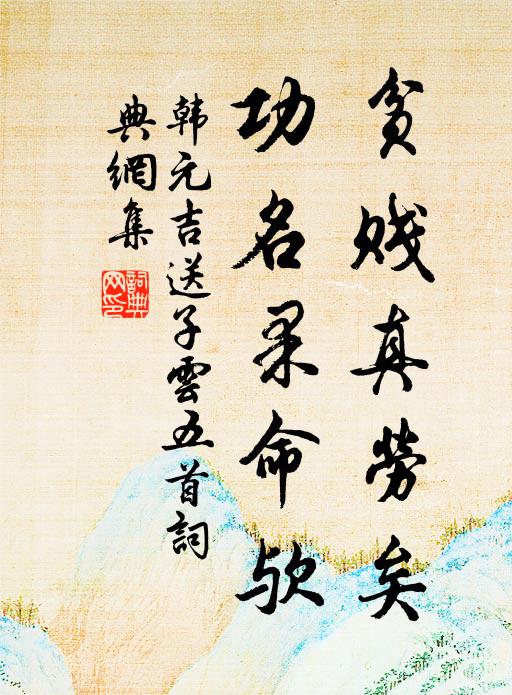 贫贱真勞矣
功名果命欤
韩元吉送子雲五首詞
典網集
詞典
网印